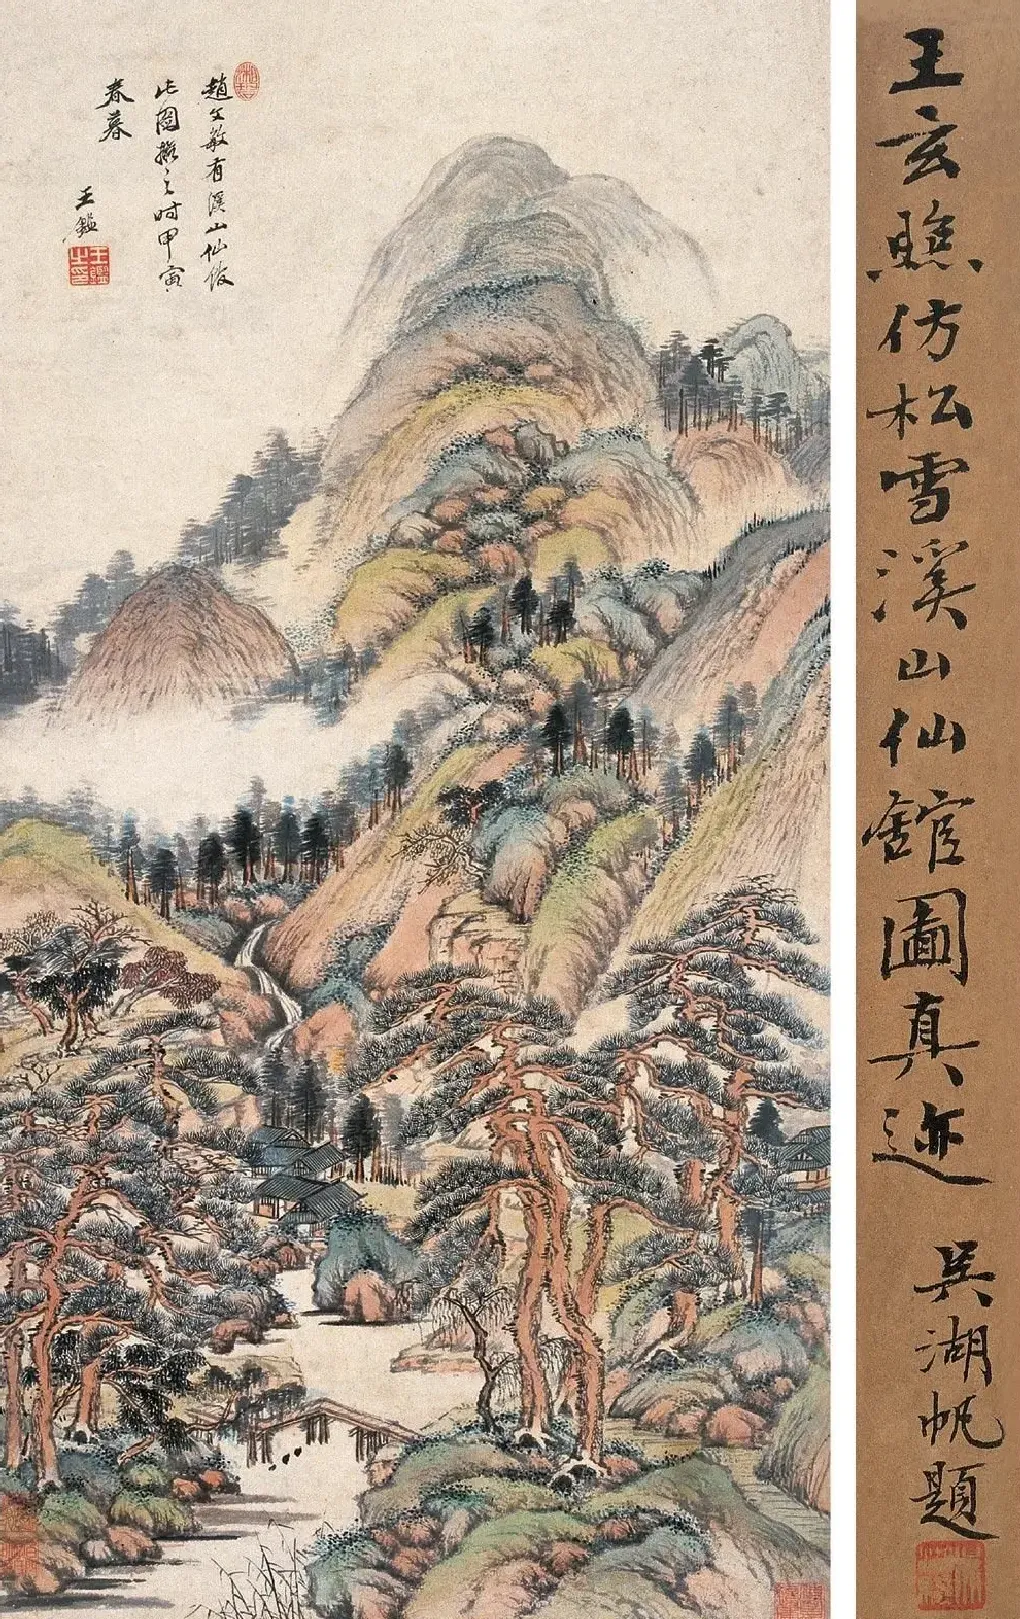 趙文敏有溪山仙館
此圖擬之時甲寅
春暮
王鑑
王鑑之印
王玄照仿松雪溪山仙館圖真迹
吳湖帆題